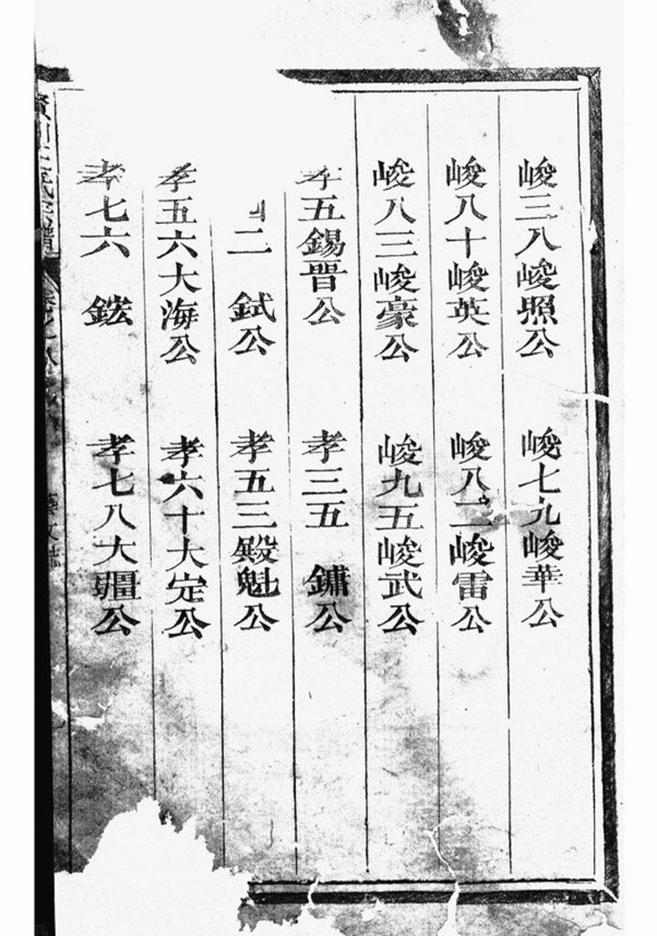 峻三八峻照公 峻七九峻華公
峻八十峻英公 峻八二峻雷公
峻八三峻豪公 峻九五峻武公
孝五錫晋公 孝三五 鏞公
二 鋱公 孝五三殿魁公
孝五六大海公 孝六十大定公
孝七六 鋐 孝七八大疆公
氏宗譜 藝文誌